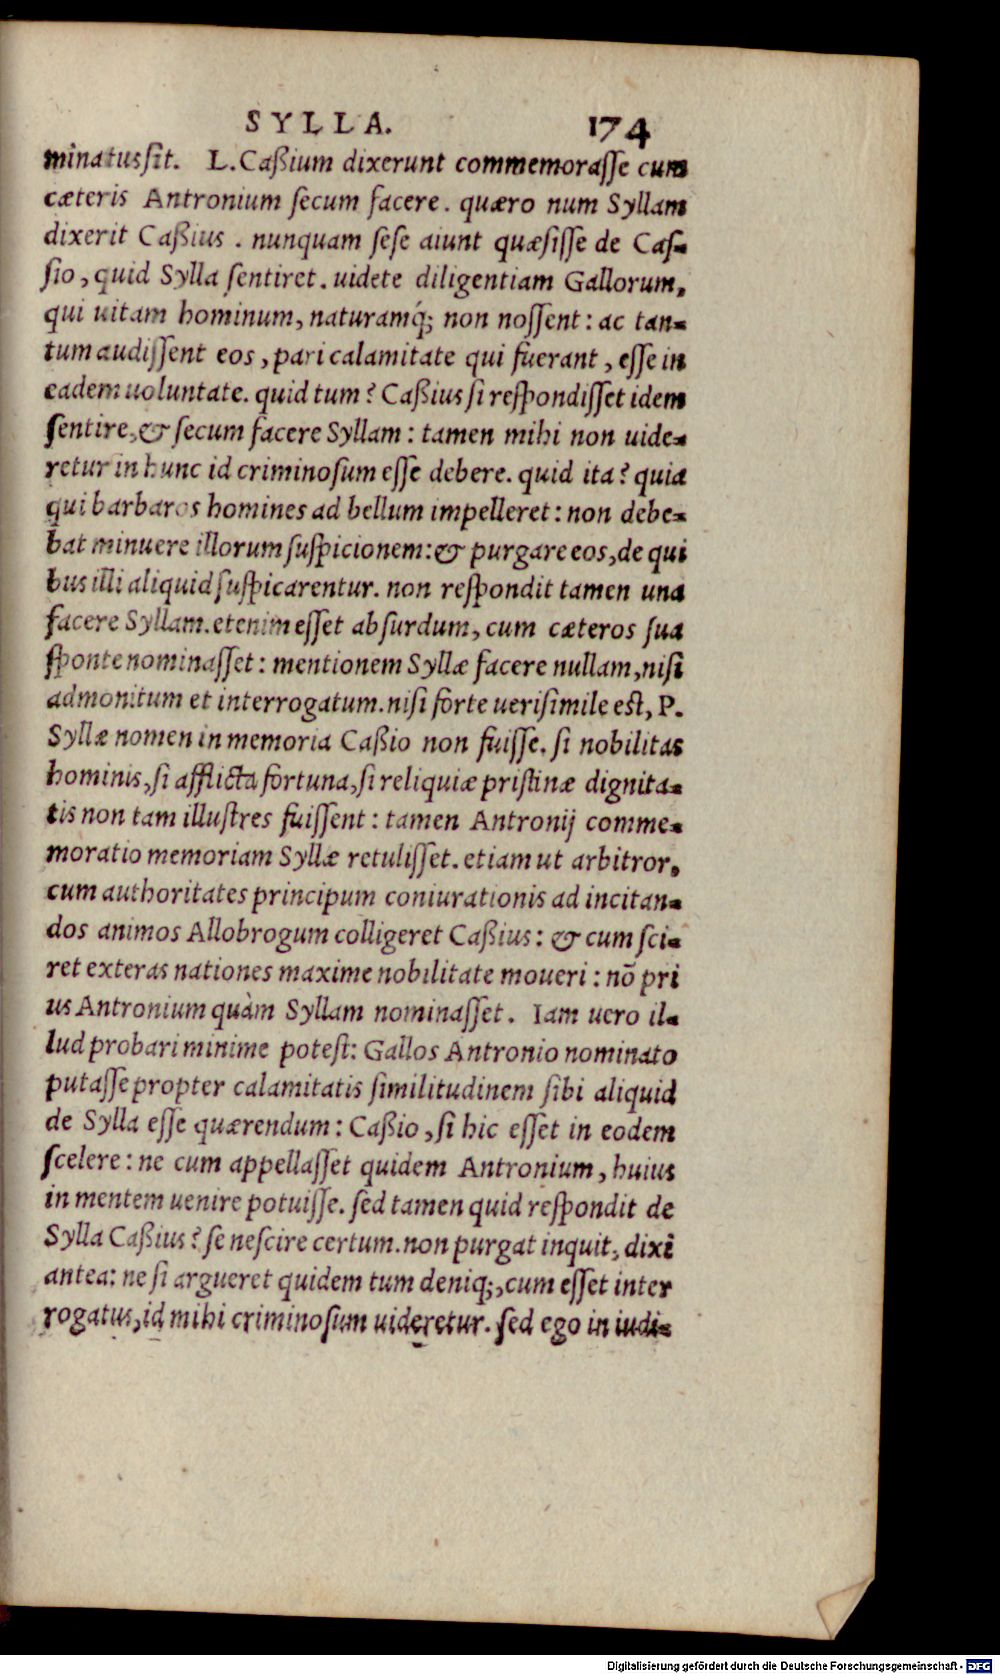 SYLLA. 174
minatus sit. L. Caßium dixerunt commemoraſſe cum
cæteris Antronium ſecum facere. quæro num Syllam
dixerit Caßius. nunquam ſeſe aiunt quæſiſſe de Caſ-
ſio, quid Sylla ſentiret. uidete diligentiam Gallorum,
qui uitam hominum, naturamq́; non noſſent: ac tan-
tum audiſſent eos, pari calamitate qui fuerant, eſſe in
eadem uoluntate. quid tum? Caßius ſi reſpondiſſet idem
ſentire, & ſecum facere Syllam: tamen mihi non uide-
retur in hunc id criminoſum eſſe debere. quid ita? quia
qui barbaros homines ad bellum impelleret: non debe-
bat minuere illorum ſuſpicionem: & purgare eos, de qui
bus illi aliquid ſuſpicarentur. non reſpondit tamen una
facere Syllam. etenim eſſet abſurdum, cum cæteros ſua
ſponte nominaſſet: mentionem Syllæ facere nullam, niſi
admonitum et interrogatum. niſi forte ueriſimile eſt, P.
Syllæ nomen in memoria Caßio non fuiſſe. ſi nobilitas
hominis, ſi afflicta fortuna, ſi reliquiæ priſtinæ dignita-
tis non tam illuſtres fuiſſent: tamen Antronij comme-
moratio memoriam Syllæ retuliſſet. etiam ut arbitror,
cum authoritates principum coniurationis ad incitan-
dos animos Allobrogum colligeret Caßius: & cum ſci-
ret exteras nationes maxime nobilitate moueri: nõ pri
us Antronium quàm Syllam nominaſſet. Iam uero il-
lud probari minime poteſt: Gallos Antronio nominato
putaſſe propter calamitatis ſimilitudinem ſibi aliquid
de Sylla eſſe quærendum: Caßio, ſi hic eſſet in eodem
ſcelere: ne cum appellaſſet quidem Antronium, huius
in mentem uenire potuiſſe. ſed tamen quid reſpondit de
Sylla Caßius? ſe neſcire certum. non purgat inquit, dixi
antea: ne ſi argueret quidem tum deniq;, cum eſſet inter
rogatus, id mihi criminoſum uideretur. ſed ego in iudi-
Digitalisierung gefördert durch die Deutsche Forschungsgemeinschaft - DFG